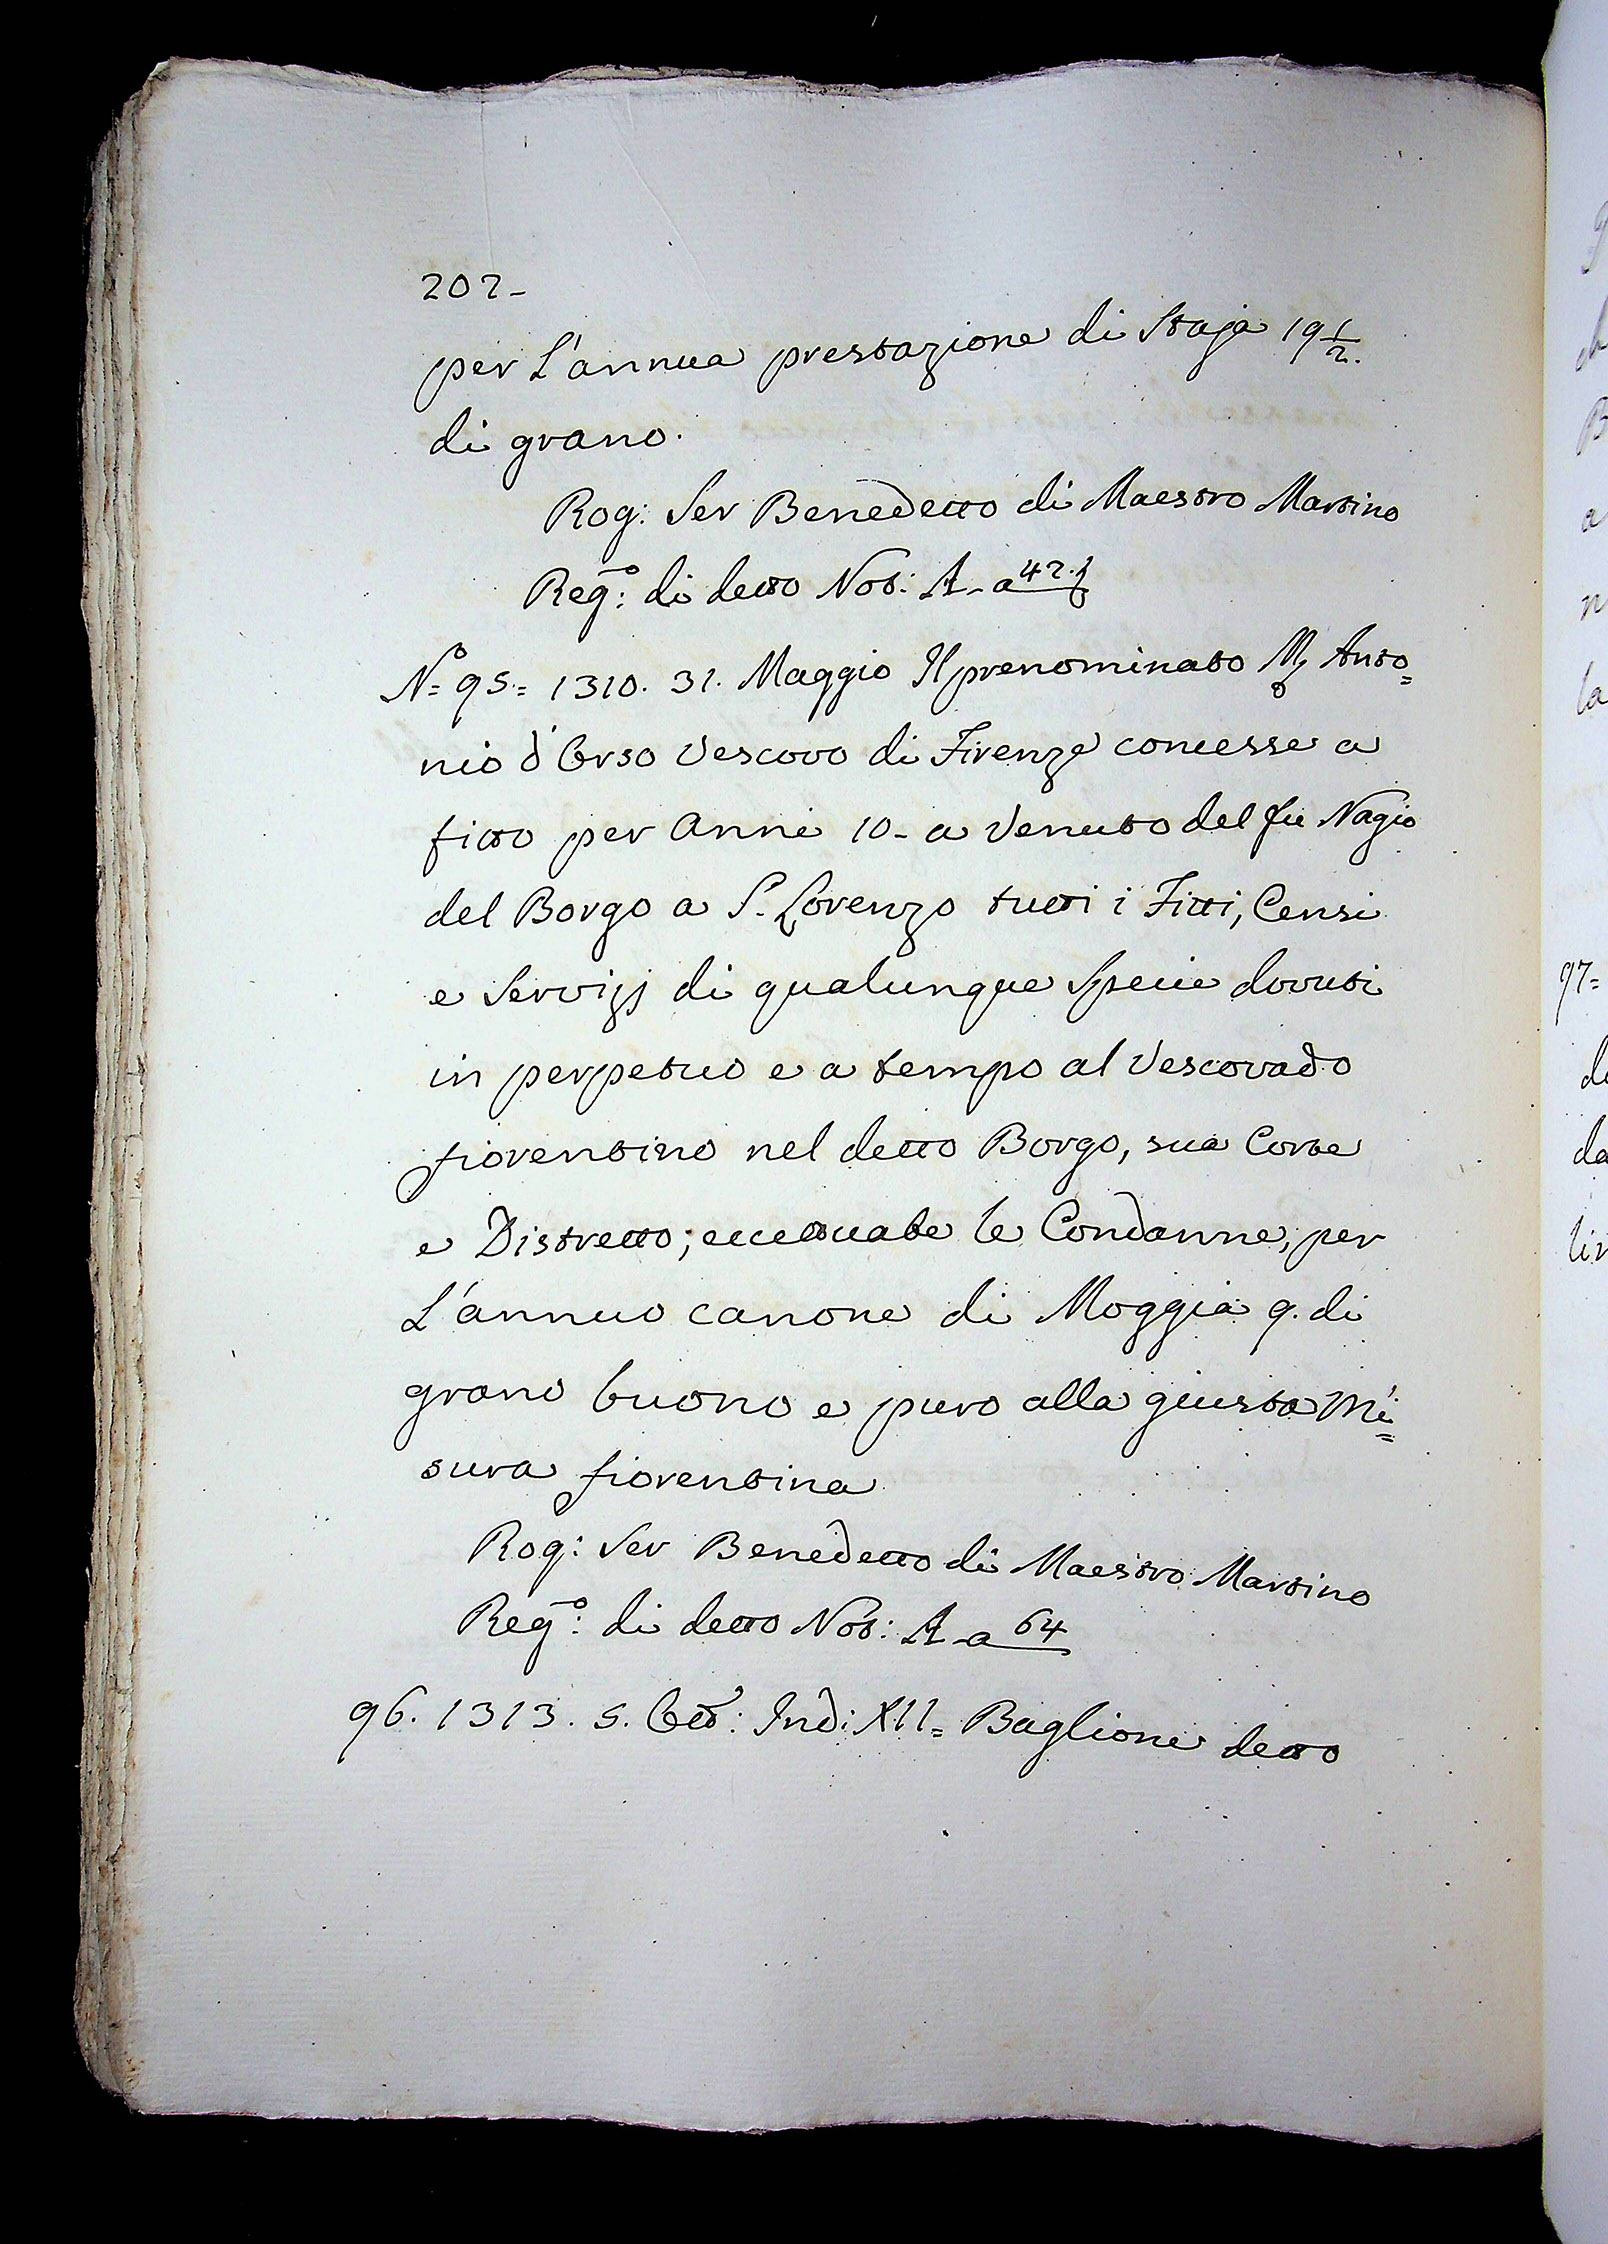 202-
per L'annua prestazione di Staja 19 1/2.
di grano.
Rog: Ser Benedetto di Maestro Martino
Reg.º: di detto Not: A - a 42.
Nº= 95.= 1310. 31. Maggio Il prenominato Anto=
nio d'Orso Vescovo di Firenze concesse a
fitto per Anni 10- a Venuto del fu Nagio
del Borgo a S. Lorenzo tutti i Fitti, Censi
e Servizj di qualunque Specie dovuti
in perpetuo e a tempo al Vescovado
fiorentino nel detto Borgo, sua Corte
e Distretto; eccettuate le Condanne, per
L'annuo canone di Moggia 9. di
grano buono e puro alla giusta Mi=
sura fiorentina
Rog: Ser Benedetto di Maestro Martino
Reg.º: di detto Not: A - a 64
96. 1313. 5. Ott: Ind: XII= Baglione detto
97=